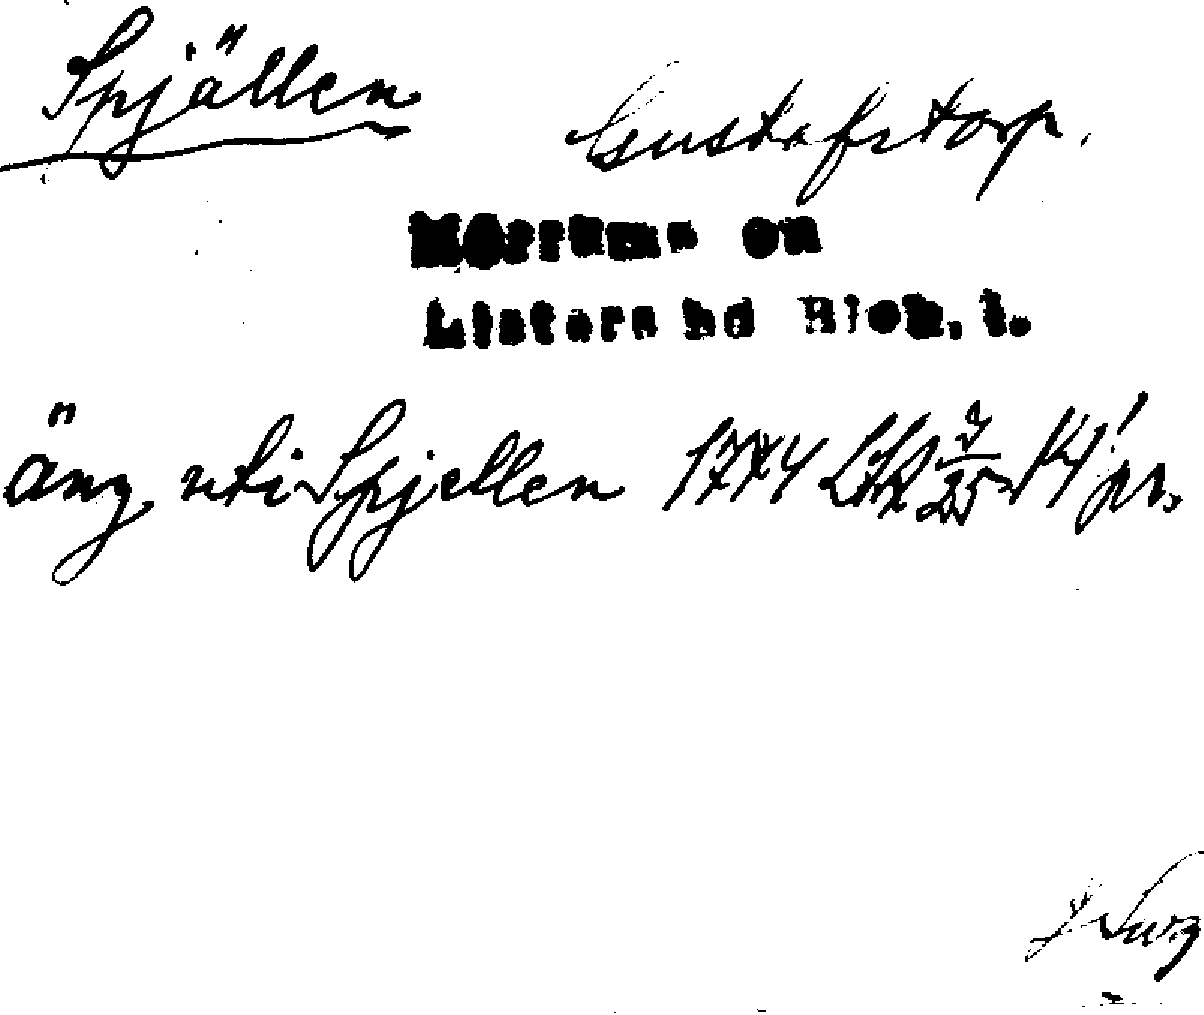 Spjällen
Gustafstorp.
Mörrums sn
Listers hd Blek. l.
Äng uti Spjellen 1774 LSK